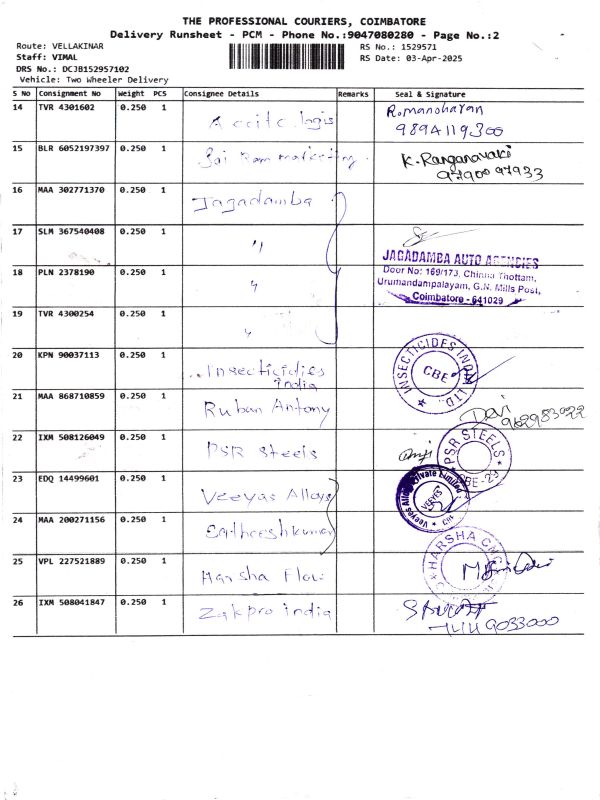 THE PROFESSIONAL COURIERS, COIMBATORE
Delivery Runsheet - PCM - Phone No.:9047080280 - Page No.:2
Route: VELLAKINAR RS No.: 1529571
Staff: VIMAL RS Date: 03-Apr-2025
DRS No.: DCJB152957102
Vehicle: Two Wheeler Delivery
S No Consignment No Weight PCS Consignee Details Remarks Seal & Signature
14 TVR 4301602 0.250 1 R.manoharan
9894119300
15 BLR 6052197397 0.250 1 Sai Ram marketing K. Ranganayaki
97900 97933
16 MAA 302771370 0.250 1 Jagadamba
17 SLM 367540408 0.250 1 "
JAGADAMBA AUTO AGENCIES
Door No: 169/173, Chinna Thottam,
Urumandampalayam, G.N. Mills Post,
Coimbatore - 641029
18 PLN 2378190 0.250 1 "
19 TVR 4300254 0.250 1 "
20 KPN 90037113 0.250 1 Insecticidies
india
INSECTICIDES INDIA LTD.
CBE
21 MAA 868710859 0.250 1 Ruban Antony Devi
22 IXM 508126049 0.250 1 PSR Steels
PSR STEELS
CBE-29
23 EDQ 14499601 0.250 1 Veeyas Alloys
Veeyas Alloys Private Limited
CBE
24 MAA 200271156 0.250 1 Satheeshkumar
25 VPL 227521889 0.250 1 Harsha
HARSHA CNC
26 IXM 508041847 0.250 1 Zakpro india
7449033000